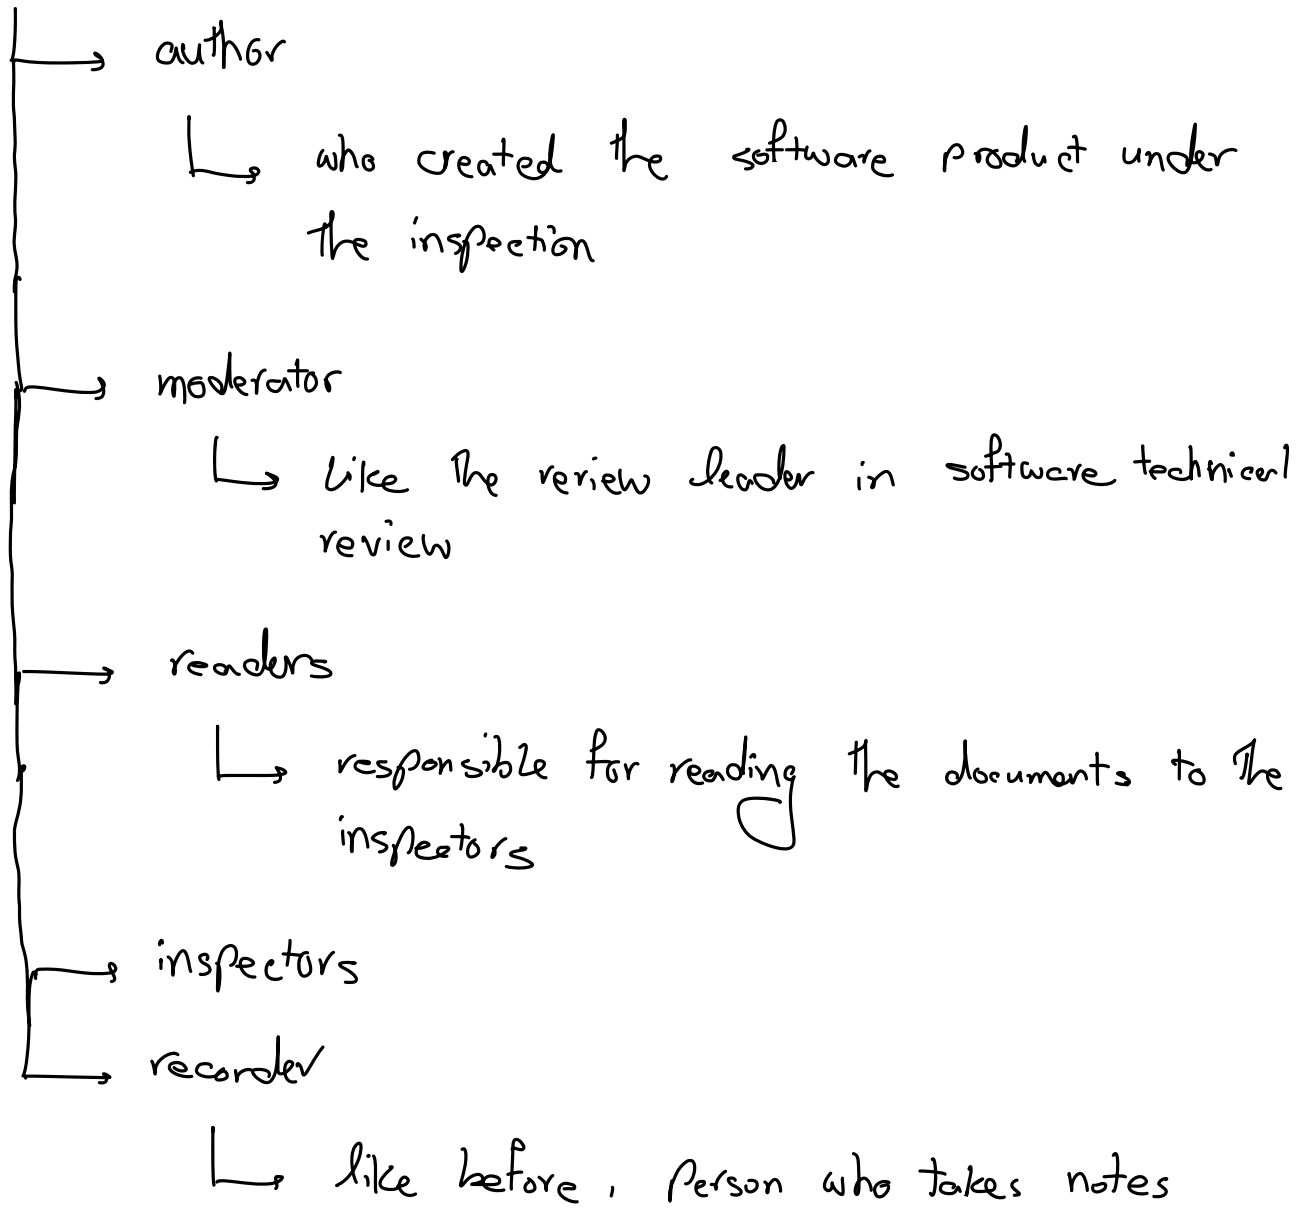 author
who created the software product under
the inspection
moderator
Like the review leader in software technical
review
readers
responsible for reading the documents to the
inspectors
inspectors
recorder
like before, person who takes notes